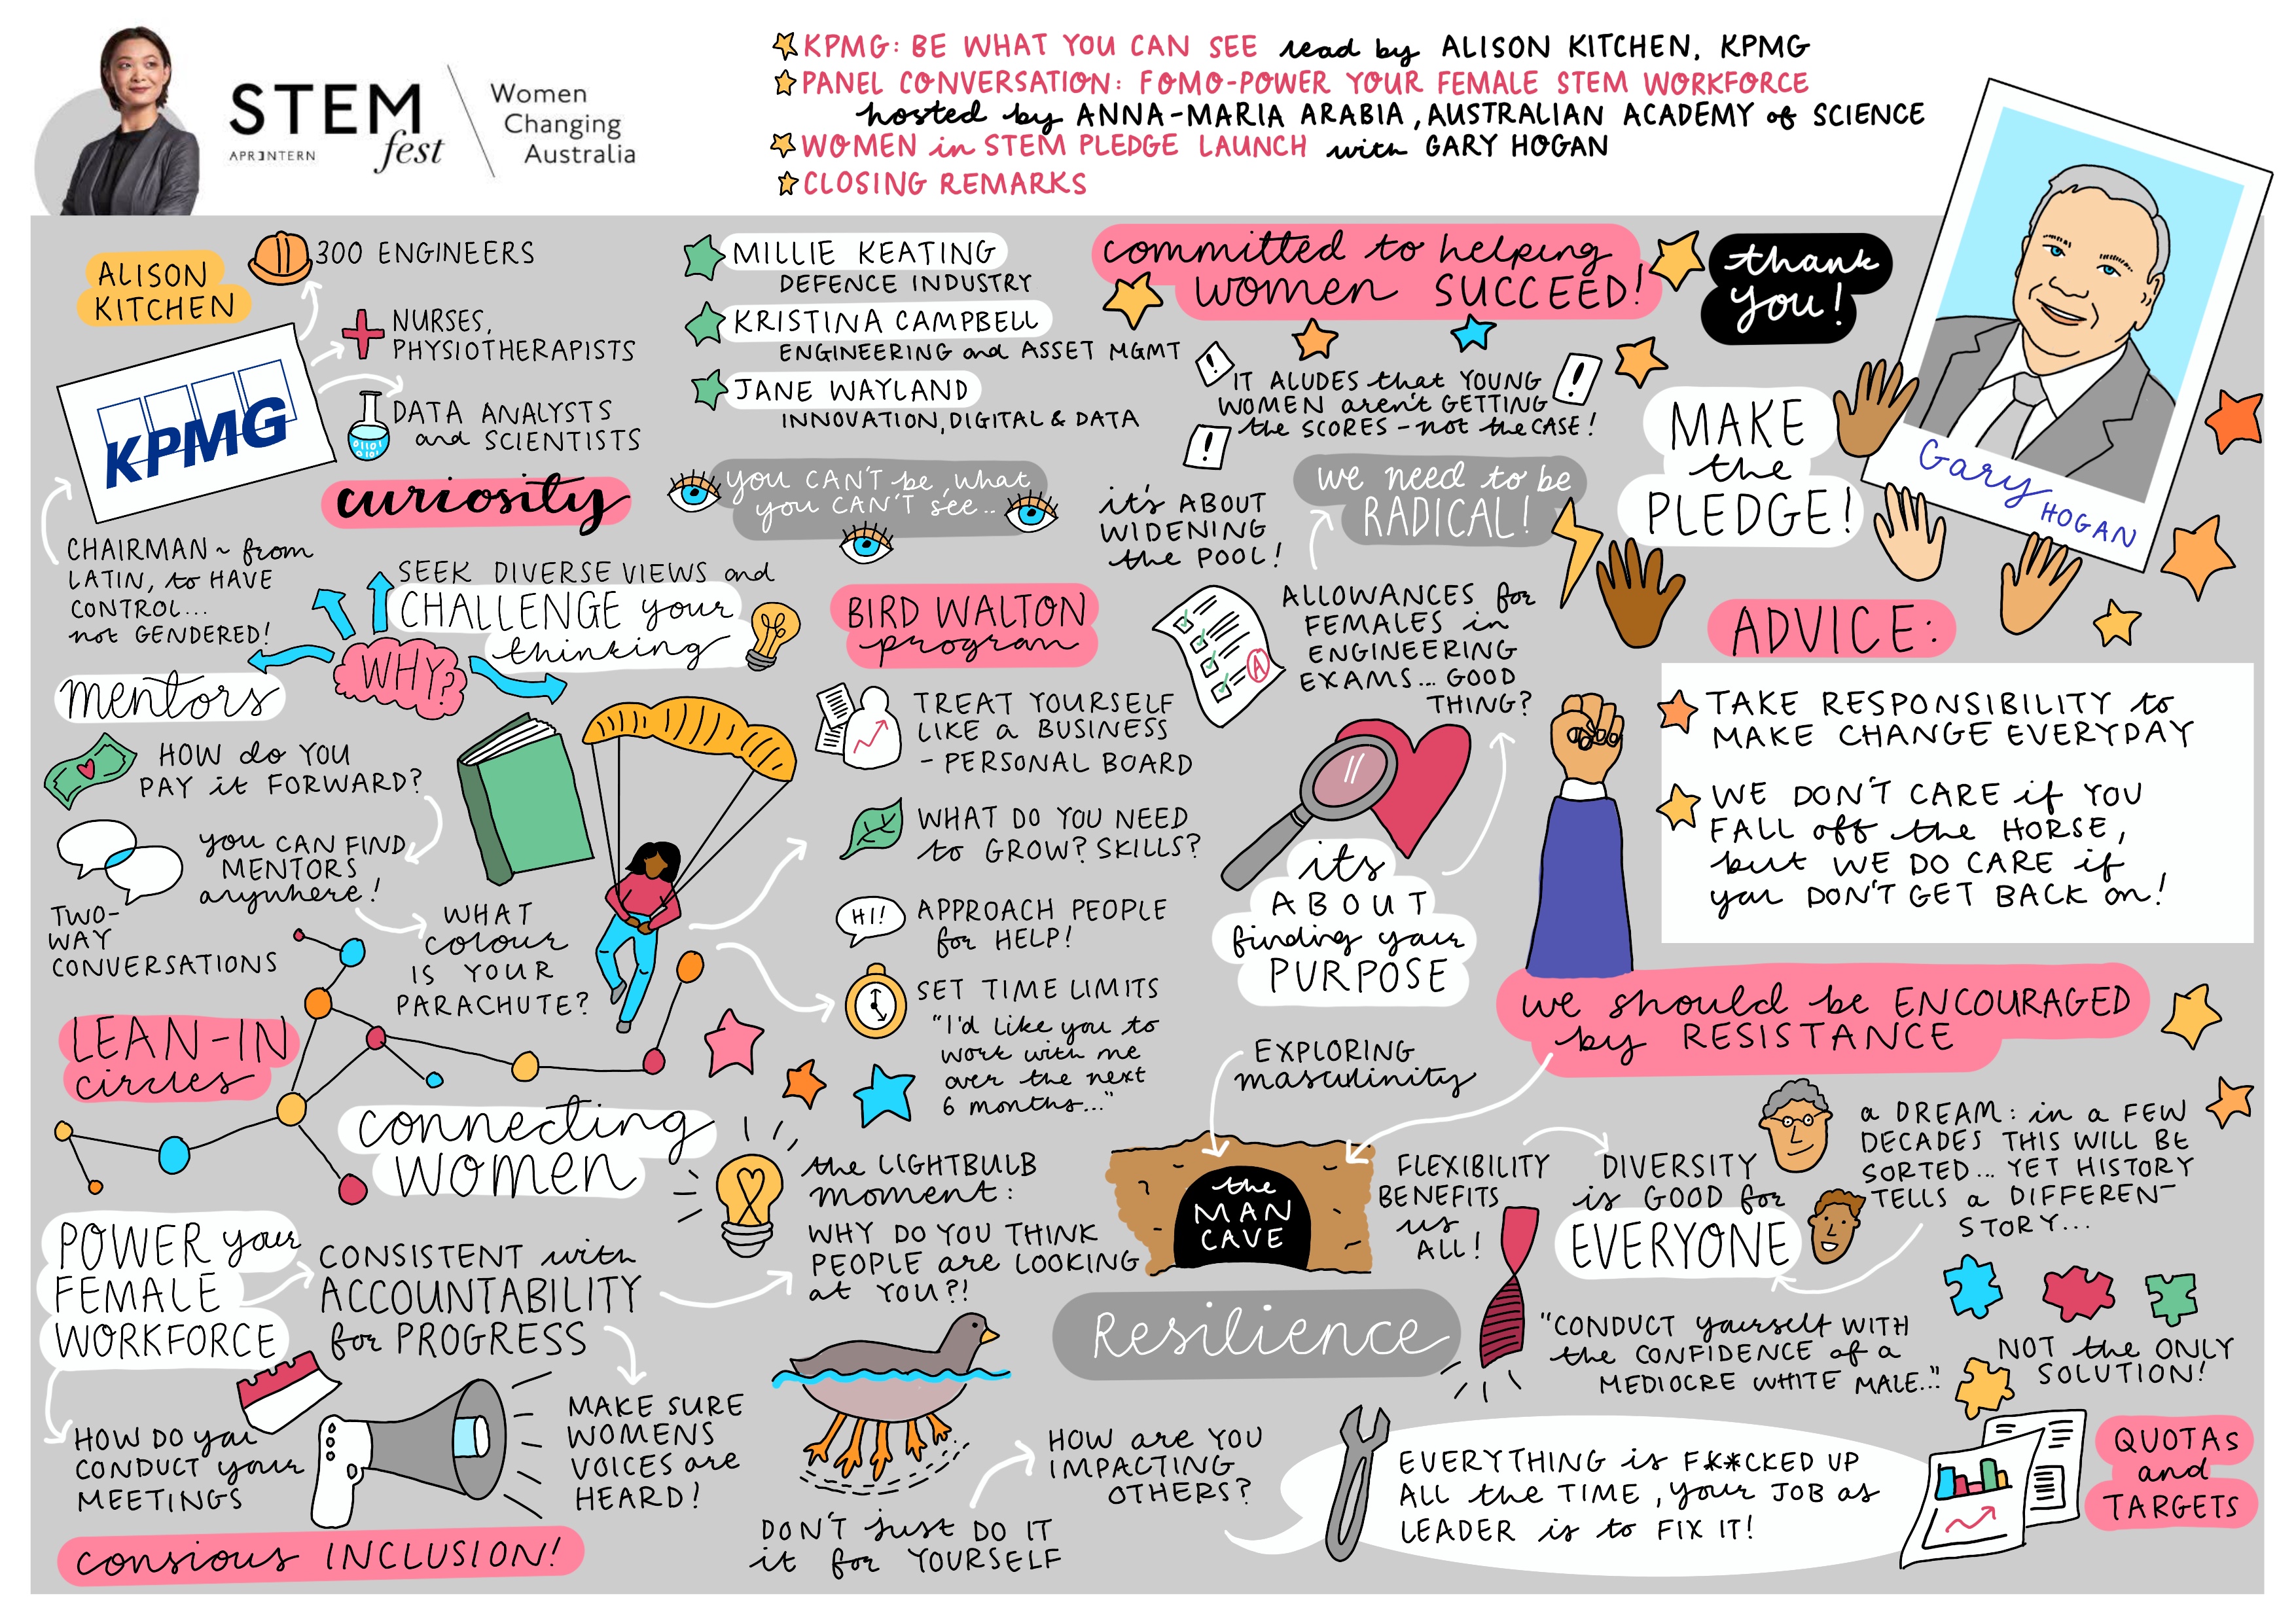 STEM
APR3NTERN
fest
Women
Changing
Australia
KPMG: BE WHAT YOU CAN SEE read by ALISON KITCHEN, KPMG
PANEL CONVERSATION: FOMO-POWER YOUR FEMALE STEM WORKFORCE
hosted by ANNA-MARIA ARABIA, AUSTRALIAN ACADEMY of SCIENCE
WOMEN in STEM PLEDGE LAUNCH with GARY HOGAN
CLOSING REMARKS
ALISON
KITCHEN
300 ENGINEERS
NURSES,
PHYSIOTHERAPISTS
DATA ANALYSTS
and SCIENTISTS
KPMG
CHAIRMAN ~ from
LATIN, to HAVE
CONTROL...
not GENDERED!
curiosity
SEEK DIVERSE VIEWS and
CHALLENGE your
thinking
WHY?
MILLIE KEATING
DEFENCE INDUSTRY
KRISTINA CAMPBELL
ENGINEERING and ASSET MGMT
JANE WAYLAND
INNOVATION, DIGITAL & DATA
you CAN'T be, what
you CAN'T see...
mentors
HOW do YOU
PAY it FORWARD?
you CAN FIND
MENTORS
anywhere!
TWO-
WAY
CONVERSATIONS
WHAT
colour
IS YOUR
PARACHUTE?
BIRD WALTON
program
TREAT YOURSELF
LIKE a BUSINESS
- PERSONAL BOARD
WHAT DO YOU NEED
to GROW? SKILLS?
HI!
APPROACH PEOPLE
for HELP!
SET TIME LIMITS
"I'd like you to
work with me
over the next
6 months..."
LEAN-IN
circles
connecting
WOMEN
committed to helping
women SUCCEED!
IT ALUDES that YOUNG
WOMEN aren't GETTING
the SCORES - not the CASE!
we need to be
RADICAL!
it's ABOUT
WIDENING
the POOL!
ALLOWANCES for
FEMALES in
ENGINEERING
EXAMS... GOOD
THING?
A
its
ABOUT
finding your
PURPOSE
thank
you!
MAKE
the
PLEDGE!
Gary
HOGAN
ADVICE:
TAKE RESPONSIBILITY to
MAKE CHANGE EVERYDAY
WE DON'T CARE if YOU
FALL off the HORSE,
but WE DO CARE if
you DON'T GET BACK on!
we should be ENCOURAGED
by RESISTANCE
EXPLORING
masculinity
the
MAN
CAVE
FLEXIBILITY
BENEFITS
us
ALL!
DIVERSITY
is GOOD for
EVERYONE
a DREAM: in a FEW
DECADES THIS WILL BE
SORTED... YET HISTORY
TELLS a DIFFERENT
STORY...
POWER your
FEMALE
WORKFORCE
CONSISTENT with
ACCOUNTABILITY
for PROGRESS
the LIGHTBULB
moment:
WHY DO YOU THINK
PEOPLE are LOOKING
at YOU?!
Resilience
"CONDUCT yourself WITH
the CONFIDENCE of a
MEDIOCRE WHITE MALE..."
NOT the ONLY
SOLUTION!
HOW DO you
CONDUCT your
MEETINGS
MAKE SURE
WOMENS
VOICES are
HEARD!
consious INCLUSION!
DON'T just DO IT
it for YOURSELF
HOW are YOU
IMPACTING
OTHERS?
EVERYTHING is F**CKED UP
ALL the TIME, your JOB as
LEADER is to FIX IT!
QUOTAs
and
TARGETS